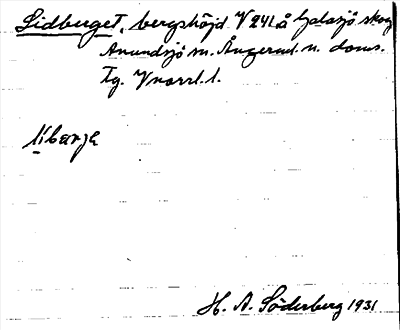 Lidberget, bergshöjd V 241 å Galasjö skog
Anundsjö sn. Ångerml. n. doms.
Tg. Vnorrl. l.
lìbærje
H. A. Söderberg 1931